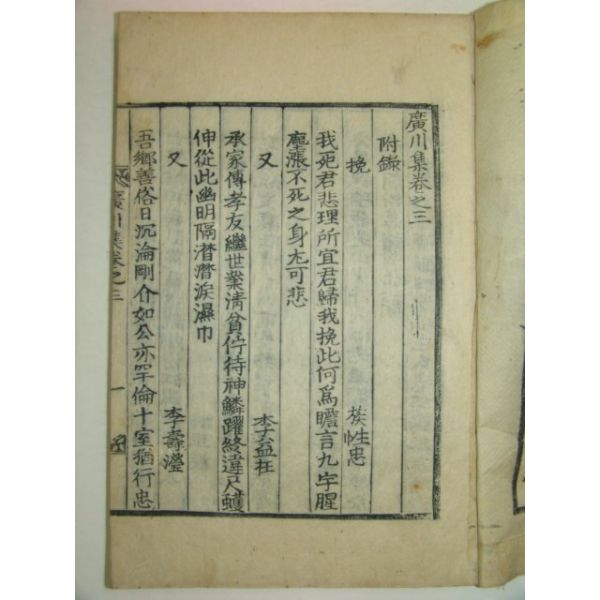 廣川集卷之三
附錄
挽 族性忠
我死君悲理所宜君歸我挽此何爲瞻言九字腥
塵漲不死之身尤可悲
又 李益柱
承家傳孝友繼世業淸貧佇待神鱗躍終違尺蠖
伸從此幽明隔潛潛淚濕巾
又 李壽瀅
吾鄕善俗日沉淪剛介如公亦罕倫十室猶行忠
廣川集卷之三 一